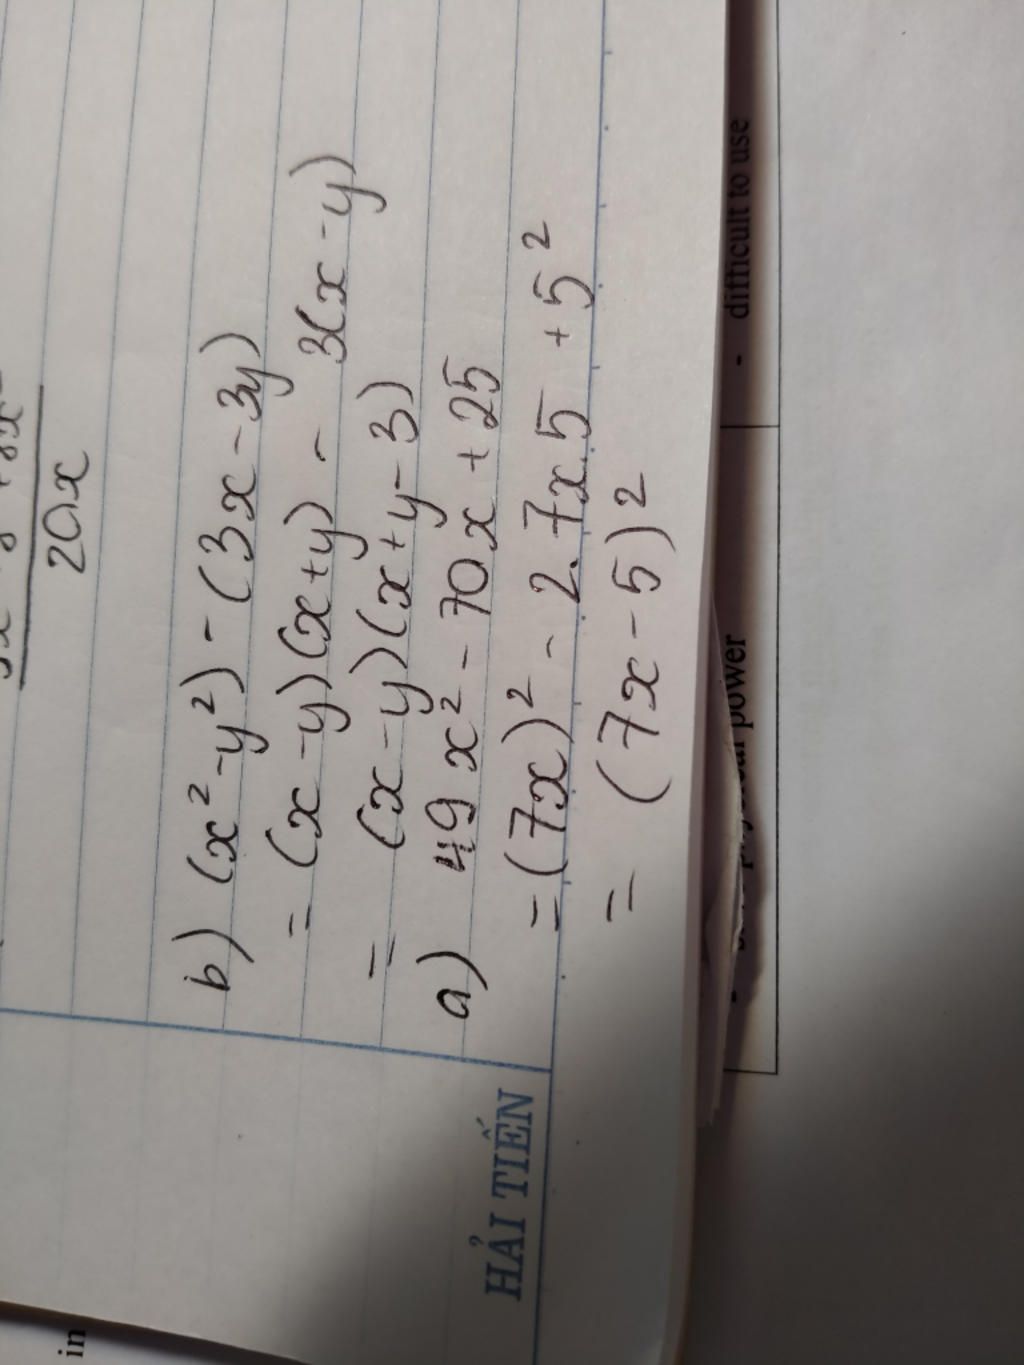 20x
b) (x² - y²) - (3x - 3y)
= (x - y)(x + y) - 3(x - y)
= (x - y)(x + y - 3)
a) 49x² - 70x + 25
= (7x)² - 2.7x.5 + 5²
= (7x - 5)²
HẢI TIẾN
- difficult to use
power
in